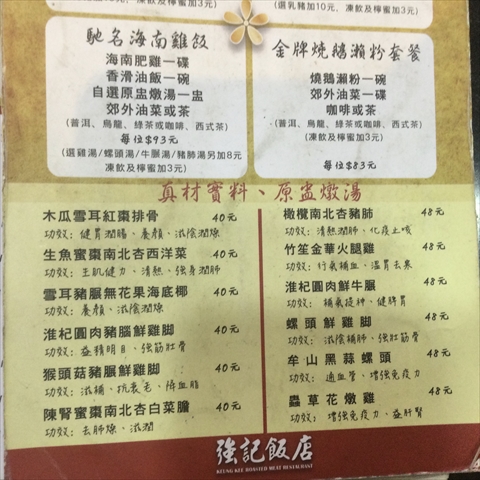 元、凍飲及檸蜜加3元)
(選乳豬加10元、凍飲及檸蜜加3元)
馳名海南雞飯
海南肥雞一碟
香滑油飯一碗
自選原盅燉湯一盅
郊外油菜或茶
(普洱、烏龍、綠茶或咖啡、西式茶)
每位$93元
(選雞湯/螺頭湯/牛𦟌湯/豬肺湯另加8元
凍飲及檸蜜加3元)
金牌燒鵝瀨粉套餐
燒鵝瀨粉一碗
郊外油菜一碟
咖啡或茶
(普洱、烏龍、綠茶或咖啡、西式茶)
凍飲及檸蜜加3元)
每位$83元
真材實料、原盅燉湯
木瓜雪耳紅棗排骨 40元
功效:健胃潤腸、養顏、滋陰潤燥
生魚蜜棗南北杏西洋菜 40元
功效:生肌健力、清熱、強身潤肺
雪耳豬𦟌無花果海底椰 40元
功效:養顏、滋陰潤燥
淮杞圓肉豬腦鮮雞脚 40元
功效:益精明目、強筋壯骨
猴頭菇豬𦟌鮮雞脚 40元
功效:滋補、抗衰老、降血脂
陳腎蜜棗南北杏白菜膽 40元
功效:去肺燥、滋潤
橄欖南北杏豬肺 48元
功效:清熱潤肺、化痰止咳
竹笙金華火腿雞 48元
功效:行氣補血、溫胃去寒
淮杞圓肉鮮牛𦟌 48元
功效:補氣提神、健脾胃
螺頭鮮雞脚 48元
功效:滋陰補肺、強壯筋骨
牟山黑蒜螺頭 48元
功效:通血管、增強免疫力
蟲草花燉雞 48元
功效:增強免疫力、益肝腎
強記飯店
KEUNG KEE ROASTED MEAT RESTAURANT